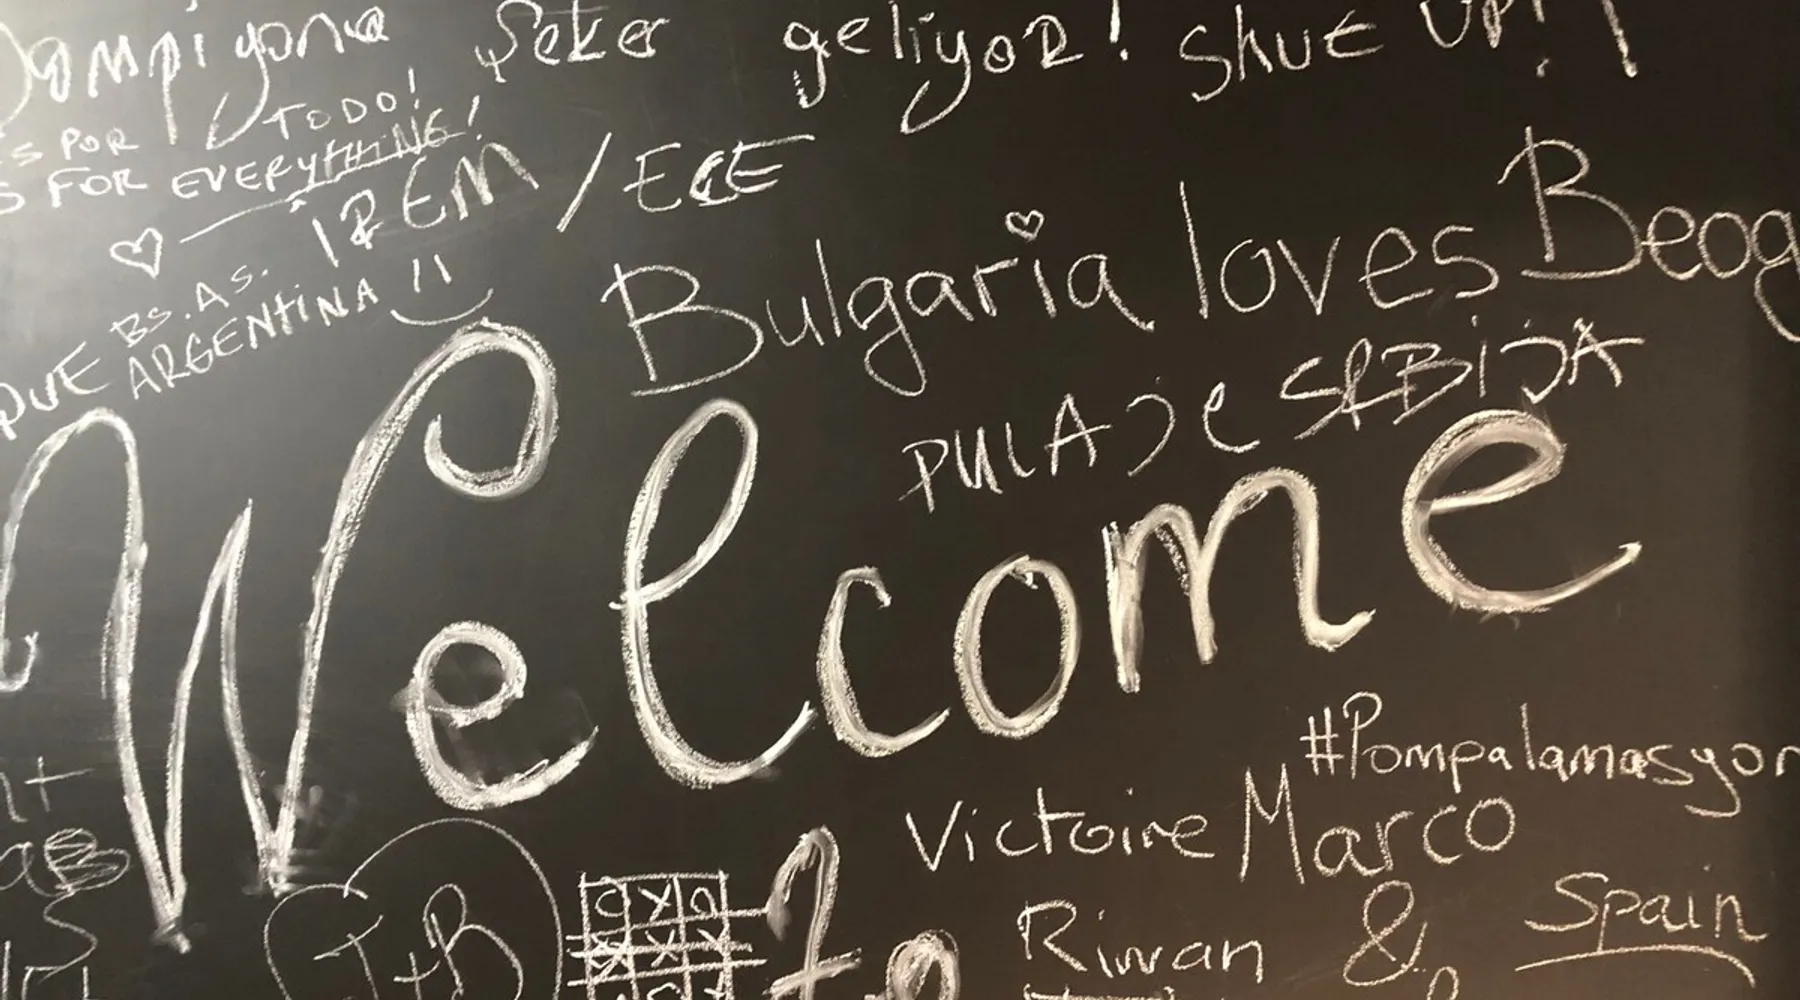 Şampiyona Şeker geliyor! Shut UP!!
S POR TODO!
S FOR EVERYTHING!
İREM / ECE
BS.AS.
QUE ARGENTINA !!
Bulgaria loves Beog
PULA JE SRBIJA
Welcome
#Pompalamasyon
Victoire Marco
J+B
to
Riwan & Spain